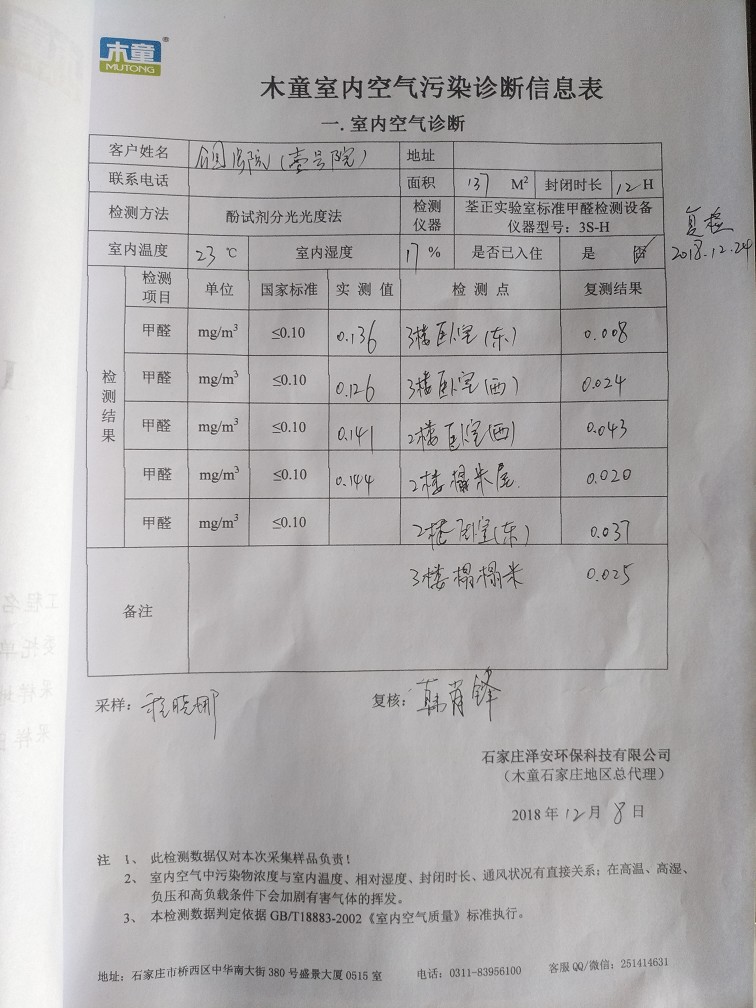 木童®
MUTONG
木童室内空气污染诊断信息表
一.室内空气诊断
客户姓名 (壹号院) 地址
联系电话 面积 137 M² 封闭时长 12 H
检测方法 酚试剂分光光度法 检测仪器 荃正实验室标准甲醛检测设备
仪器型号：3S-H
复检
2018.12.24
室内温度 23 ℃ 室内湿度 17 % 是否已入住 是 否
检测结果
检测项目 单位 国家标准 实 测 值 检 测 点 复测结果
甲醛 mg/m³ ≤0.10 0.136 3楼卧室(东) 0.008
甲醛 mg/m³ ≤0.10 0.126 3楼卧室(西) 0.024
甲醛 mg/m³ ≤0.10 0.141 2楼卧室(西) 0.043
甲醛 mg/m³ ≤0.10 0.144 2楼榻米屋. 0.020
甲醛 mg/m³ ≤0.10 2楼卧室(东) 0.037
备注 3楼榻榻米 0.025
采样： 程晓娜 复核： 韩肖锋
石家庄泽安环保科技有限公司
（木童石家庄地区总代理）
2018 年 12 月 8 日
注 1、 此检测数据仅对本次采集样品负责！
2、 室内空气中污染物浓度与室内温度、相对湿度、封闭时长、通风状况有直接关系；在高温、高湿、
负压和高负载条件下会加剧有害气体的挥发。
3、 本检测数据判定依据 GB/T18883-2002《室内空气质量》标准执行。
地址：石家庄市桥西区中华南大街 380 号盛景大厦 0515 室 电话：0311-83956100 客服 QQ/微信：251414631